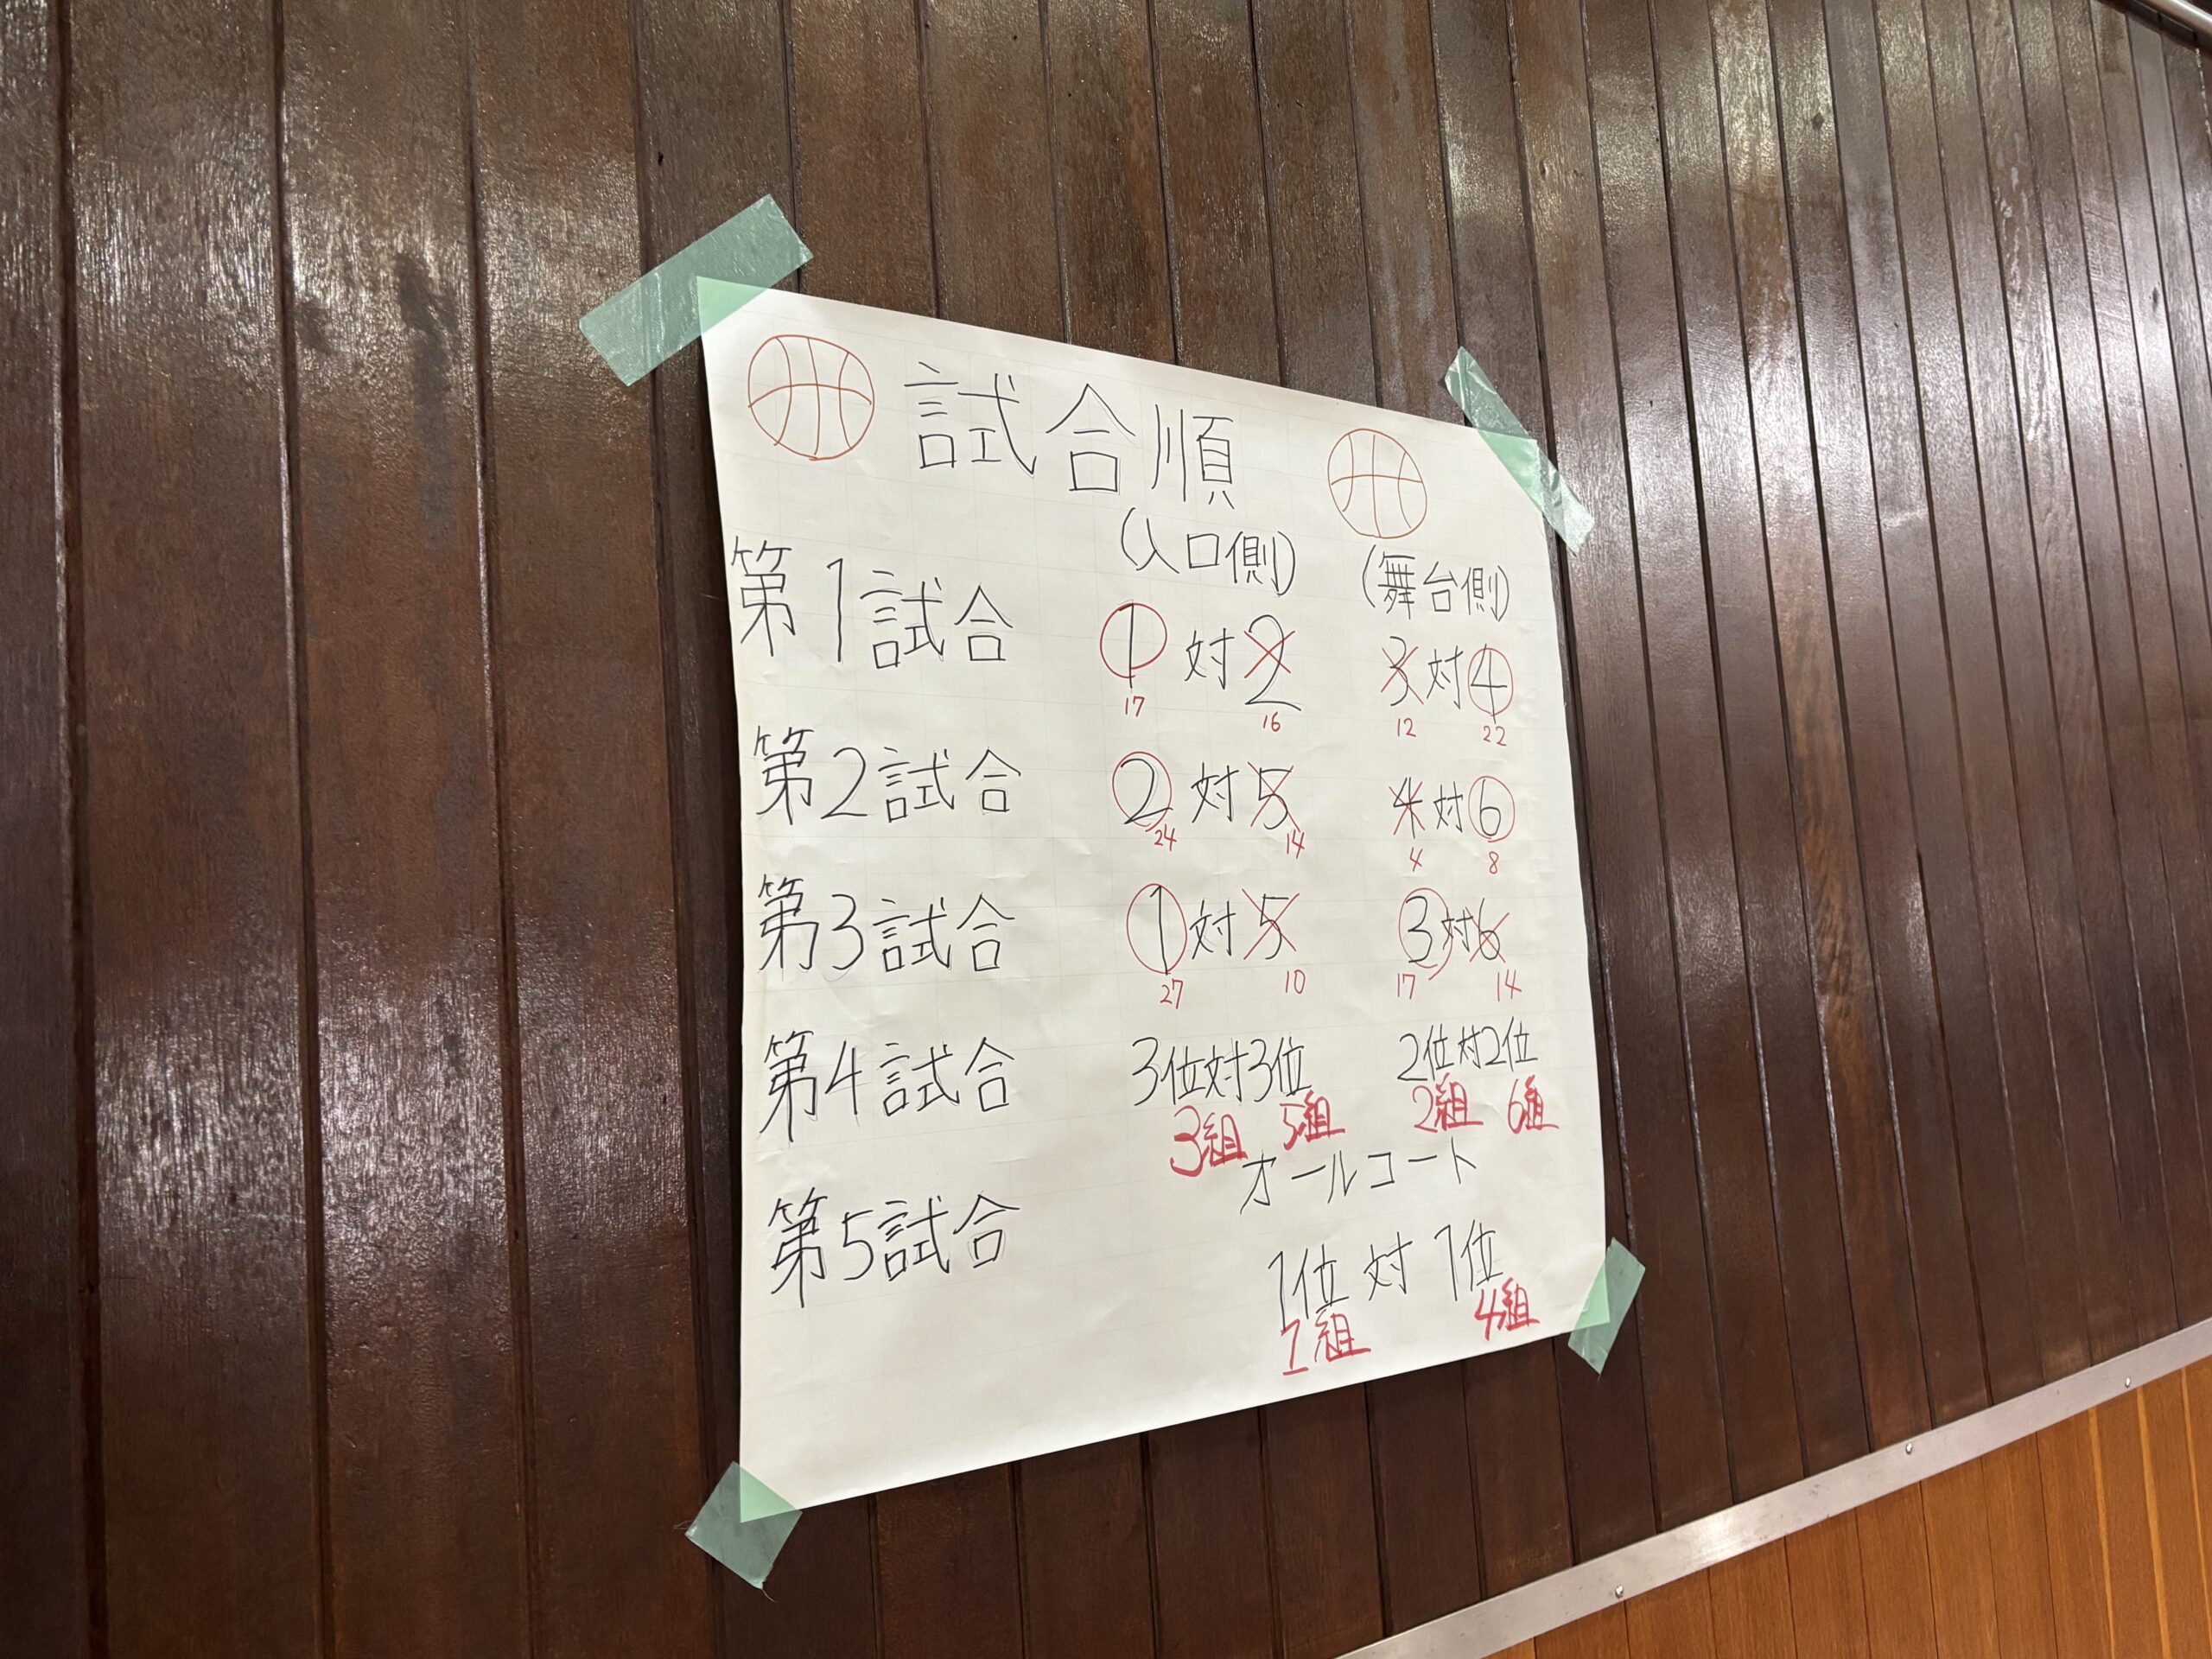 試合順
(入口側) (舞台側)
第1試合 1 対 2 3 対 4
17 16 12 22
第2試合 2 対 5 4 対 6
24 14 4 8
第3試合 1 対 5 3 対 6
27 10 17 14
第4試合 3位対3位 2位対2位
3組 5組 2組 6組
オールコート
第5試合 1位 対 1位
1組 4組